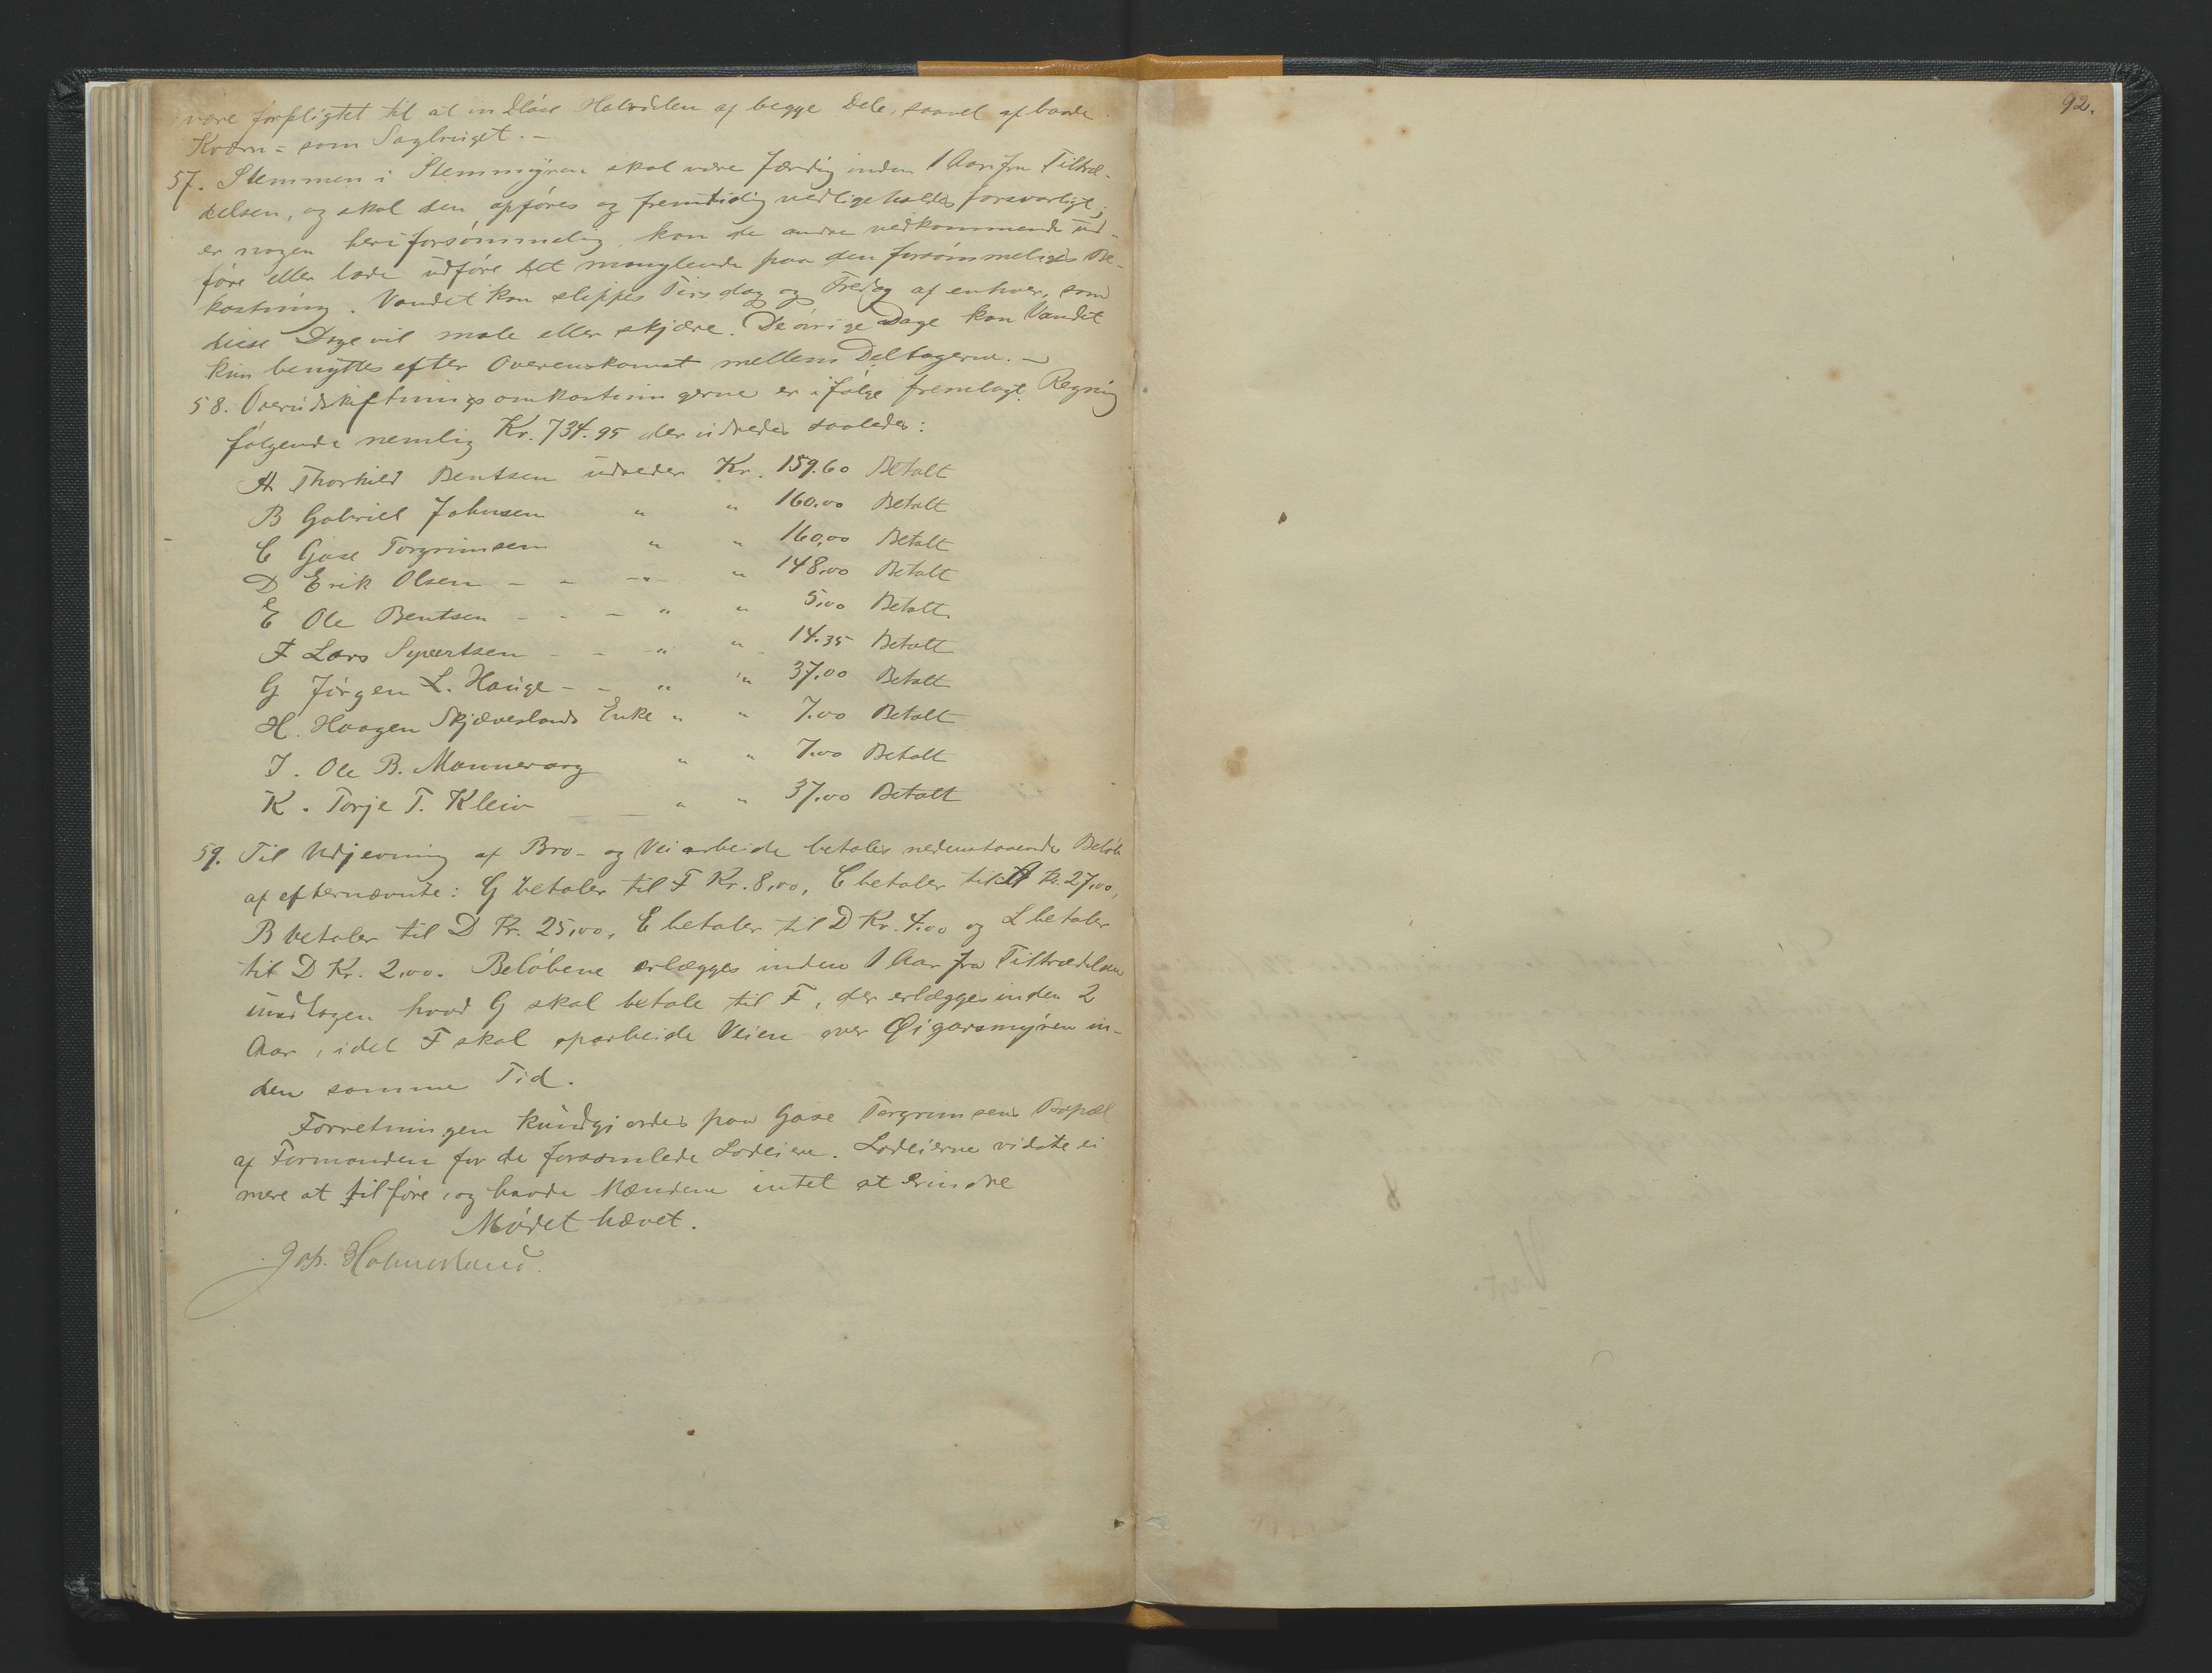 være forpligtet til at indløse Halvdelen af begge Dele, saavel af baade
Kværn= som Sagbruget. –
57. Stemmen i Stemmyren skal være færdig inden 1 Aar fra Tiltræ-
delsen, og skal den opføres og fremtidig vedligeholdes forsvarligt;
er nogen heri forsømmelig, kan de andre vedkommende ud-
føre eller lade udføre det manglende paa den forsømmeliges Be-
kostning. Vandet kan slippes Tirsdag og Fredag af enhver, som
disse Dage vil male eller skjære. De øvrige Dage kan Vandet
kun benyttes efter Overenskomst mellem Deltagerne. –
58. Overudskiftningsomkostningerne er ifølge fremlagt Regning
følgende nemlig Kr. 734.95 der udredes saaledes:
A Thorkild Bentsen udreder Kr. 159.60 Betalt
B Gabriel Johnsen " " 160.00 Betalt
C Gase Torgrimsen " " 160,00 Betalt
D Erik Olsen - - -"- " 148,00 Betalt
E Ole Bentsen - - - " " 5,00 Betalt
F Lars Syvertsen - - -" " 14.35 Betalt
G Jörgen L. Hauge - - " " 37,00 Betalt
H. Haagen Skjæveslands Enke " " 7.00 Betalt
I. Ole B. Mannevarg " " 7.00 Betalt
K. Torje T. Kleiv " " 37,00 Betalt
59. Til Udjevning af Bro- og Veiarbeide betales nedenstaaende Beløb
af efternævnte: G betaler til F Kr. 8,00, C betaler til A Kr. 27,00,
B betaler til D Kr. 25,00, E betaler til D Kr. 4.00 og L betaler
til D Kr. 2,00. Beløbene erlægges inden 1 Aar fra Tiltrædelsen
undtagen hvad G skal betale til F, der erlægges inden 2
Aar, idet F skal oparbeide Veien over Øigarsmyren in-
den samme Tid.
Forretningen kundgjordes paa Gase Torgrimsens Bopæl
af Formanden for de forsamlede Lodeiere. Lodeierne vidste ei
mere at tilføre, og havde Mændene intet at erindre
Mødet hævet.
92.